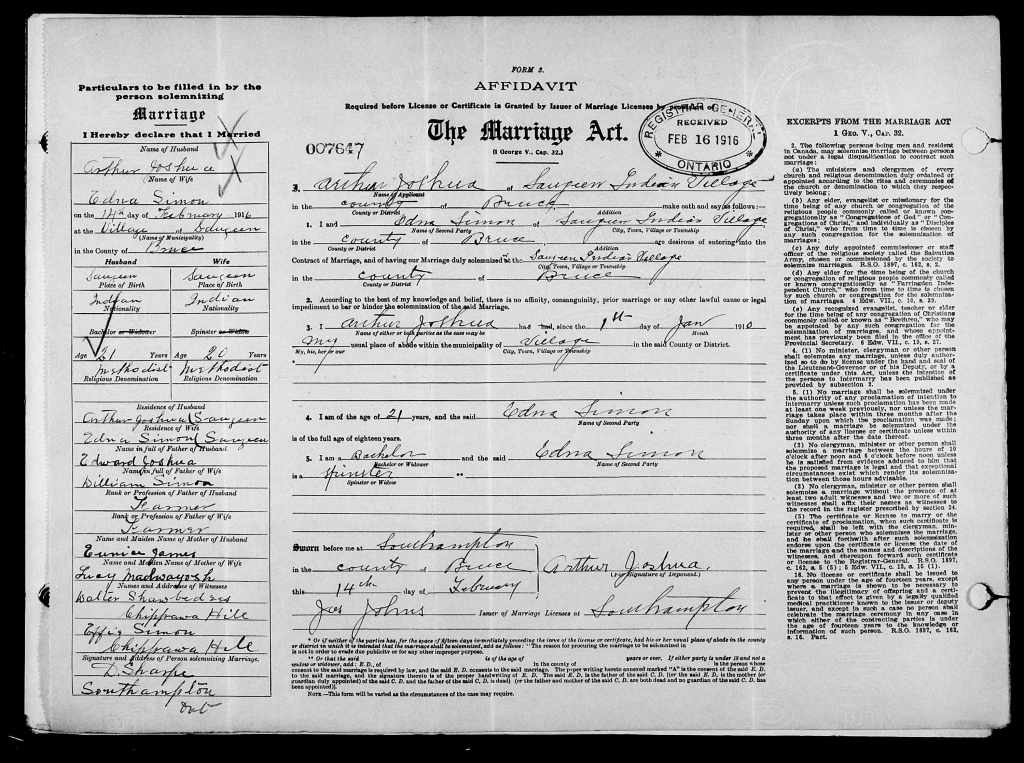 Particulars to be filled in by the
person solemnizing
Marriage
I Hereby declare that I Married
Name of Husband
Arthur Joshua
Name of Wife
Edna Simon
on the 14th day of February 1916
at the Village of Saugeen
(Name of Municipality)
in the County of Bruce
Husband Wife
Saugeen Saugeen
Place of Birth Place of Birth
Indian Indian
Nationality Nationality
Bachelor or Widower Spinster or Widow
Age 21 Years Age 20 Years
Methodist Methodist
Religious Denomination Religious Denomination
Residence of Husband
Arthur Joshua (Saugeen
Residence of Wife
Edna Simon (Saugeen
Name in full of Father of Husband
Edward Joshua
Name in full of Father of Wife
William Simon
Rank or Profession of Father of Husband
Farmer
Rank or Profession of Father of Wife
Farmer
Name and Maiden Name of Mother of Husband
Eunice James
Name and Maiden Name of Mother of Wife
Lucy Madwayosh
Names and Addresses of Witnesses
Walter Shawbedees
Chippawa Hill
Effie Simon
Chippawa Hill
Signature and Address of Person solemnizing Marriage.
D. Sharpe
Southampton
Ont
FORM 2.
AFFIDAVIT
Required before License or Certificate is Granted by Issuer of Marriage Licenses by of
The Marriage Act.
(1 George V., Cap. 32.)
007647
REGISTRAR GENERAL
RECEIVED
FEB 16 1916
* ONTARIO *
I, Arthur Joshua of Saugeen Indian Village
Name of Applicant
in the county of Bruce make oath and say as follows:—
County or District Addition
1. I and Edna Simon of Saugeen Indian Village
Name of Second Party City, Town, Village or Township
in the county of Bruce are desirous of entering into the
County or District Addition
Contract of Marriage, and of having our Marriage duly solemnized at the Saugeen Indian Village
City, Town, Village or Township
in the county of Bruce
County or District
2. According to the best of my knowledge and belief, there is no affinity, consanguinity, prior marriage or any other lawful cause or legal
impediment to bar or hinder the solemnization of the said Marriage.
3. I Arthur Joshua had, since the 1st day of Jan 1910
Name of either or both parties as the case may be Month
My usual place of abode within the municipality of Village in the said County or District.
My, his, her or our City, Town, Village or Township
4. I am of the age of 21 years, and the said Edna Simon
Name of Second Party
is of the full age of eighteen years.
5. I am a Bachelor and the said Edna Simon
Bachelor or Widower Name of Second Party
is a Spinster
Spinster or Widow
Sworn before me at Southampton
in the county of Bruce
this 14th day of February
Arthur Joshua.
(Signature of Deponent.)
Jas Johns Issuer of Marriage Licenses at Southampton
* Or if neither of the parties has, for the space of fifteen days immediately preceding the issue of the license or certificate, had his or her usual place of abode in the county
or district in which it is intended that the marriage shall be solemnized, add as follows: "The reason for procuring the marriage to be solemnized in
is not in order to evade due publicity or for any other improper purpose.
** Or that the said is of the age of years or over. If either party is under 18 and not a
widow or widower, add: E. D., of in the county of is the person whose
consent to the said marriage is required by law, and the said E. D. consents to the said marriage. The paper writing hereto annexed marked "A" is the consent of the said E. D.
to the said marriage, and the signature thereto is of the proper handwriting of E. D. The said E. D. is the father of the said C. D. [(or the said E. D. is the mother (or
guardian duly appointed) of the said C. D. and the father of the said C. D. is dead) (or the father and mother of the said C. D. are both dead and no guardian of the said C. D. has
been appointed)].
NOTE—This form will be varied as the circumstances of the case may require.
EXCERPTS FROM THE MARRIAGE ACT
1 GEO. V., CAP. 32.
2. The following persons being men and resident
in Canada, may solemnize marriage between persons
not under a legal disqualification to contract such
marriage:
(a) The ministers and clergymen of every
church and religious denomination duly ordained or
appointed according to the rites and ceremonies of
the church or denomination to which they respec-
tively belong;
(b) Any elder, evangelist or missionary for the
time being of any church or congregation of the
religious people commonly called or known as con-
gregationally as "Congregations of God" or "Con-
gregations of Christ," and individually as "Disciples
of Christ," who from time to time is chosen by
any such congregation for the solemnization of
marriages;
(c) Any duly appointed commissioner or staff
officer of the religious society called the Salvation
Army, chosen or commissioned by the society to
solemnize marriages. R.S.O. 1897, c. 162, s. 2.
(d) Any elder for the time being of the church
or congregation of religious people commonly called
or known congregationally as "Farringdon Inde-
pendent Church," who from time to time is chosen
by such church or congregation for the solemniza-
tion of marriages. 4 Edw. VII., c. 10, s. 23.
(e) Any recognized evangelist, teacher or elder
for the time being of any congregation of Christians
commonly called or known as "Brethren," who may
be appointed by any such congregation for the
solemnization of marriages, and whose appoint-
ment has previously been filed in the office of the
Provincial Secretary. 6 Edw. VII., c. 19, s. 27.
4. (1) No minister, clergyman or other person
shall solemnize any marriage, unless duly author-
ized so to do by license under the hand and seal of
the Lieutenant-Governor or of his Deputy, or by a
certificate under this Act, unless the intention of
the persons to intermarry has been published as
provided by subsection 2.
5. (1) No marriage shall be solemnized under
the authority of any proclamation of intention to
intermarry unless such proclamation has been made
at least one week previously, nor unless the mar-
riage takes place within three months after the
Sunday upon which the proclamation was made;
nor shall a marriage be solemnized under the
authority of any license or certificate unless within
three months after the date thereof.
(2) No clergyman, minister or other person shall
solemnize a marriage between the hours of 10
o'clock after noon and 6 o'clock before noon unless
he is satisfied from evidence adduced to him that
the proposed marriage is legal and that exceptional
circumstances exist which render its solemniza-
tion between those hours advisable.
(3) No clergyman, minister or other person shall
solemnize a marriage without the presence of at
least two adult witnesses and two or more of such
witnesses shall affix their names as witnesses to
the record in the register prescribed by section 24.
(5) The certificate or license to marry or the
certificate of proclamation, when such certificate is
required, shall be left with the clergyman, min-
ister or other person who solemnizes the marriage,
and he shall forthwith after such solemnization
endorse upon the certificate or license the date of
the marriage and the names and descriptions of the
witnesses, and thereupon forward such certificate
or license to the Registrar-General. R.S.O. 1897,
c. 162, s. 5 (5); 5 Edw. VII., c. 13, s. 15 (1).
16. No license or certificate shall be issued to
any person under the age of fourteen years, except
where a marriage is shown to be necessary to
prevent the illegitimacy of offspring and a certi-
ficate to that effect is given by a legally qualified
medical practitioner known to the issuer or deputy
issuer, and except in such a case no person shall
celebrate the marriage ceremony in any case in
which either of the contracting parties is under
the age of fourteen years to the knowledge or
information of such person. R.S.O. 1897, c. 162,
s. 16. Part.